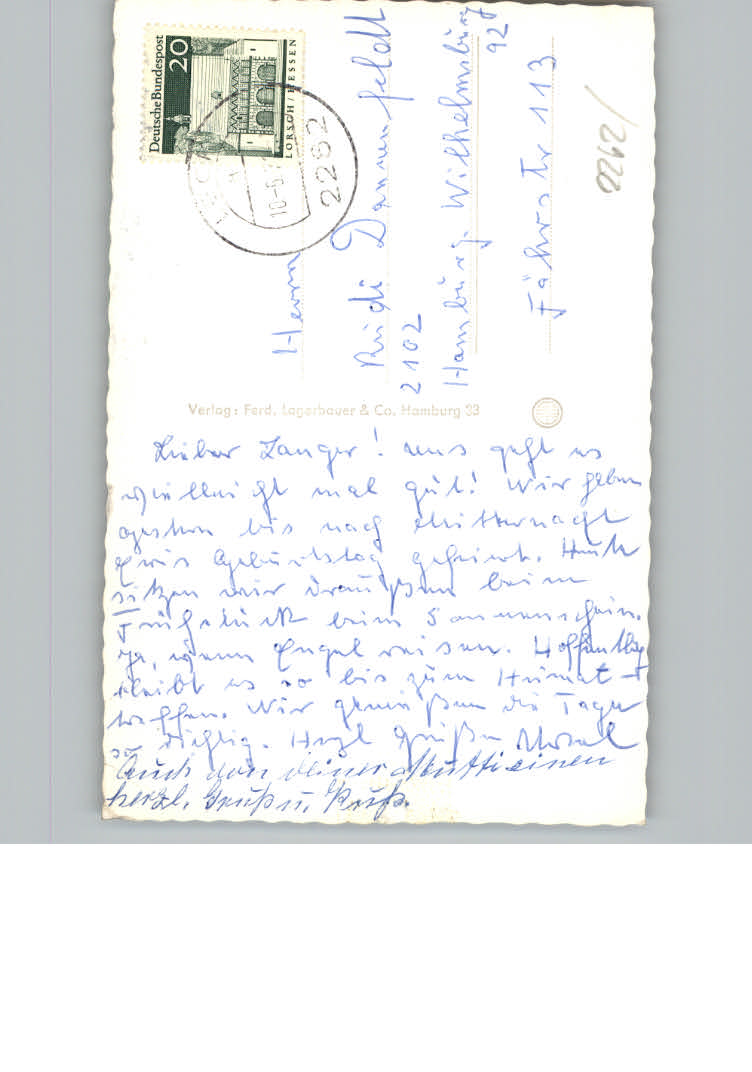 Deutsche Bundespost
20
LORSCH/HESSEN
10-5
2262
Herrn
Rudi Dannenfeldt
2102
Hamburg. Wilhelmsburg
Fährstr 113
2262/
Verlag: Ferd. Lagerbauer & Co. Hamburg 33
Lieber Zanger! uns geht es
vielleicht mal gut! Wir haben
gestern bis nach Mitternacht
Geburtstag gefeiert. Heute
sitzen wir draußen beim
Frühstück beim Sonnenschein.
Ja, wenn Engel reisen. Hoffentlich
bleibt es so bis zum Heimat-
treffen. Wir genießen die Tage
so richtig. Herzl Grüßen
Auch von deiner Mutti einen
herzl. Gruß u. Kuß.